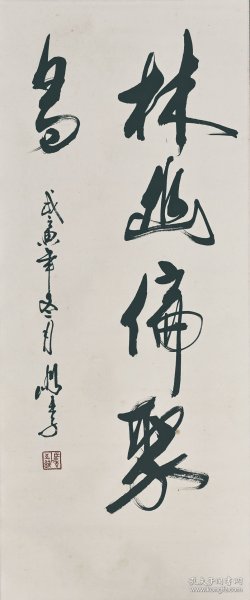 林幽偏聚
鸟
戊寅年冬月
孔夫子旧书网